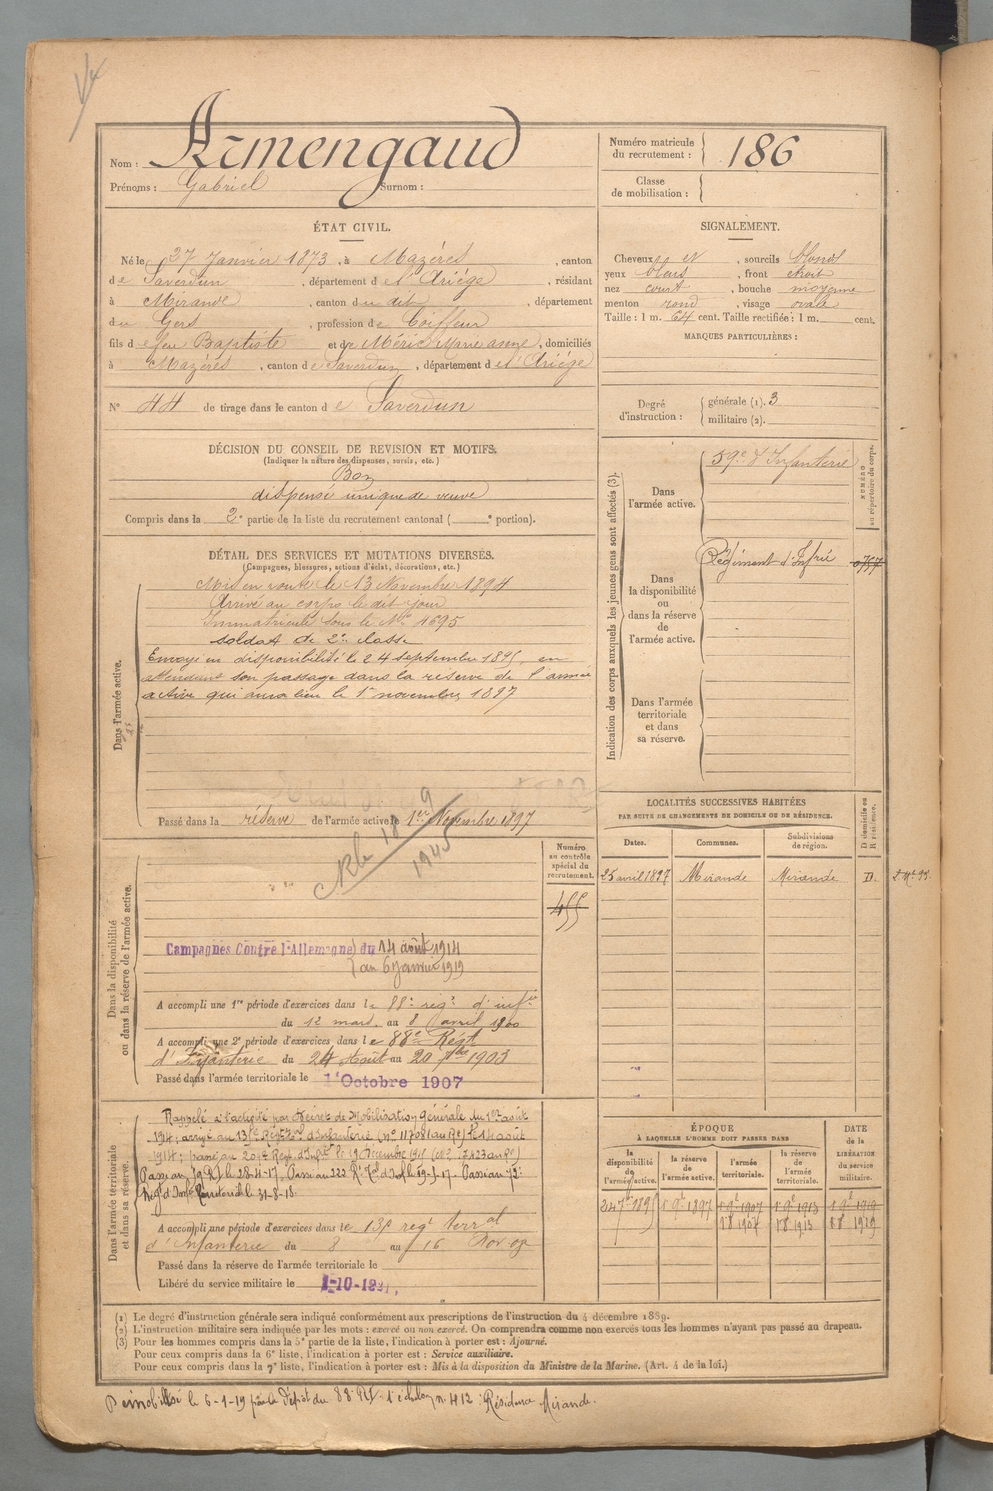 Nom : Armengaud
Prénoms : Gabriel Surnom :
Numéro matricule
du recrutement : 186
Classe
de mobilisation :
ÉTAT CIVIL.
Né le 27 Janvier 1873, à Mazérés, canton
de Saverdun, département de l'Ariège, résidant
à Mirande, canton du dit, département
du Gers, profession de Coiffeur
fils de feu Baptiste et de Méric Marie anne, domiciliés
à Mazérés, canton de Saverdun, département de l'Ariège
N° 44 de tirage dans le canton de Saverdun
SIGNALEMENT.
Cheveux et, sourcils blonds
yeux bleus, front étroit
nez court, bouche moyenne
menton rond, visage ovale
Taille : 1 m. 64 cent. Taille rectifiée : 1 m. cent.
MARQUES PARTICULIÈRES :
Degré
d'instruction :
générale (1). 3
militaire (2).
DÉCISION DU CONSEIL DE REVISION ET MOTIFS.
(Indiquer la nature des dispenses, sursis, etc.)
Bon
dispensé unique de veuve
Compris dans la 2e partie de la liste du recrutement cantonal ( e portion).
DÉTAIL DES SERVICES ET MUTATIONS DIVERSES.
(Campagnes, blessures, actions d'éclat, décorations, etc.)
Dans l'armée active.
Mis en route le 13 Novembre 1894
Arrivé au corps le dit jour
Immatriculé sous le No 1695
soldat de 2e classe
Envoyé en disponibilité le 24 septembre 1895, en
attendant son passage dans la réserve de l'armée
active qui aura lieu le 1er novembre 1897
Passé dans la réserve de l'armée active le 1er Novembre 1897
Indication des corps auxquels les jeunes gens sont affectés (3).
Dans
l'armée active.
59e d'Infanterie
NUMÉRO
au répertoire du corps.
Dans
la disponibilité
ou
dans la réserve
de
l'armée active.
Régiment d'Infrie
0757
Dans l'armée
territoriale
et dans
sa réserve.
LOCALITÉS SUCCESSIVES HABITÉES
PAR SUITE DE CHANGEMENTS DE DOMICILE OU DE RÉSIDENCE.
Dates. Communes. Subdivisions
de région.
D domicile ou
R résidence.
25 avril 1897 Mirande Mirande D.
Dans la disponibilité
ou dans la réserve de l'armée active.
Numéro
au contrôle
spécial du
recrutement.
455
1945
Campagnes Contre l'Allemagne du 14 août 1914
au 6 janvier 1919
A accompli une 1re période d'exercices dans le 88e régt d'infie
du 12 mars au 8 avril 1900
A accompli une 2e période d'exercices dans le 88e Régt
d'Infanterie du 24 Août au 20 7bre 1903
Passé dans l'armée territoriale le 1er Octobre 1907
Dans l'armée territoriale
et dans sa réserve.
Rappelé à l'activité par décret de Mobilisation Générale du 1er août
1914; arrivé au 135e Régt d'Infanterie (no 11708 au Re) le 14 août
1914; passé au 209e Régt d'Infie le 19 Décembre 1915
Passé au 222 Rt d'Inf. le 29-5-17. Passé au 72e
Régt d'Infie Territorial le 31-8-18.
A accompli une période d'exercices dans le 135e régt terral
d'Infanterie du 8 au 16
Passé dans la réserve de l'armée territoriale le
Libéré du service militaire le 1-10-1921.
ÉPOQUE
À LAQUELLE L'HOMME DOIT PASSER DANS
la
disponibilité
de
l'armée active.
la
réserve de
l'armée active.
l'armée
territoriale.
la réserve
de
l'armée
territoriale.
DATE
de la
LIBÉRATION
du service
militaire.
24 7bre 1895 1 9e 1897 1 9e 1907 1 9e 1913 1 9e 1919
1 8 1907 1 8 1913 1 8 1919
(1) Le degré d'instruction générale sera indiqué conformément aux prescriptions de l'instruction du 4 décembre 1889.
(2) L'instruction militaire sera indiquée par les mots : exercé ou non exercé. On comprendra comme non exercés tous les hommes n'ayant pas passé au drapeau.
(3) Pour les hommes compris dans la 5e partie de la liste, l'indication à porter est : Ajourné.
Pour ceux compris dans la 6e liste, l'indication à porter est : Service auxiliaire.
Pour ceux compris dans la 7e liste, l'indication à porter est : Mis à la disposition du Ministre de la Marine. (Art. 4 de la loi.)
Démobilisé le 6-1-19 par le dépôt du 88 RI. 1er échelon n. 412. Résidence Mirande.